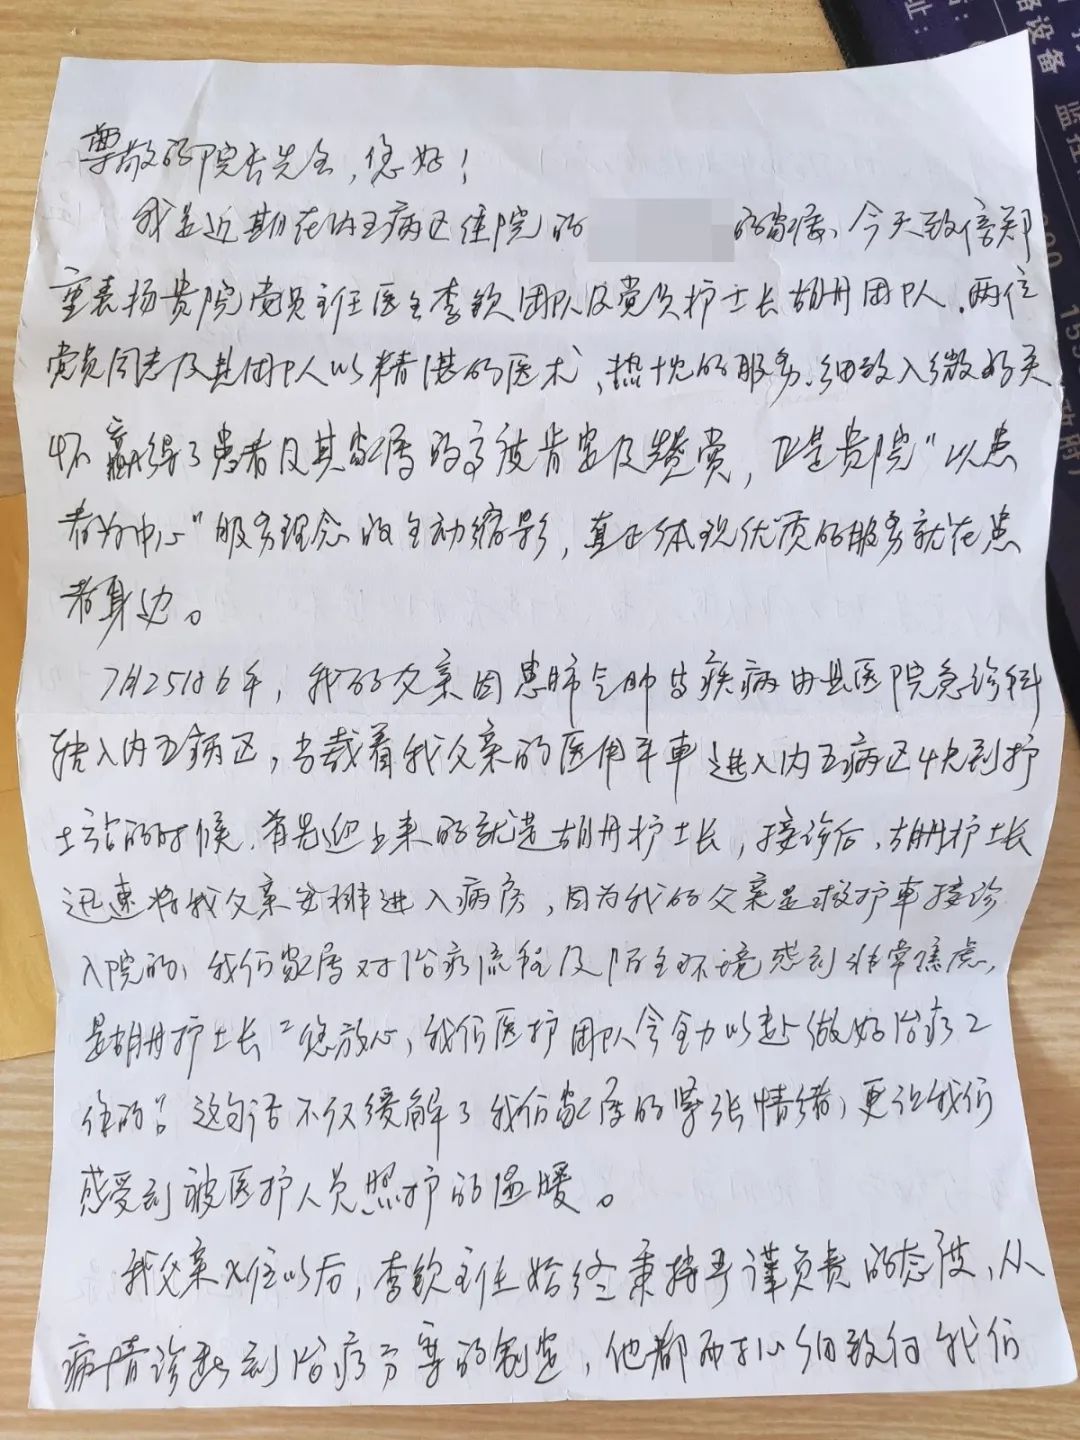 尊敬的院长先生,您好!
我是近期在内五病区住院的 的家属、今天致信郑
重表扬贵院党员主任医生李钦团队及党员护士长胡丹团队.两位
党员同志及其团队以精湛的医术、热忱的服务、细致入微的关
怀赢得了患者及其家属的高度肯定及赞赏,正是贵院"以患
者为中心"服务理念的生动缩影,真正体现优质的服务就在患
者身边。
7月25日上午,我的父亲因患肺气肿与疾病由县医院急诊科
转入内五病区,当载着我父亲的医用平车进入内五病区快到护
士站的时候.首先迎上来的就是胡丹护士长,接诊后.胡丹护士长
迅速将我父亲安排进入病房,因为我的父亲是救护车接诊
入院的,我们家属对治疗流程及陌生环境感到非常焦虑,
是胡丹护士长"您放心,我们医护团队会全力以赴做好治疗工
作的"。这句话不仅缓解了我们家属的紧张情绪,更让我们
感受到被医护人员照护的温暖。
我父亲入住以后,李钦主任始终秉持严谨负责的态度,从
病情诊断到治疗方案的制定,他都耐心细致向我们
设备
监控